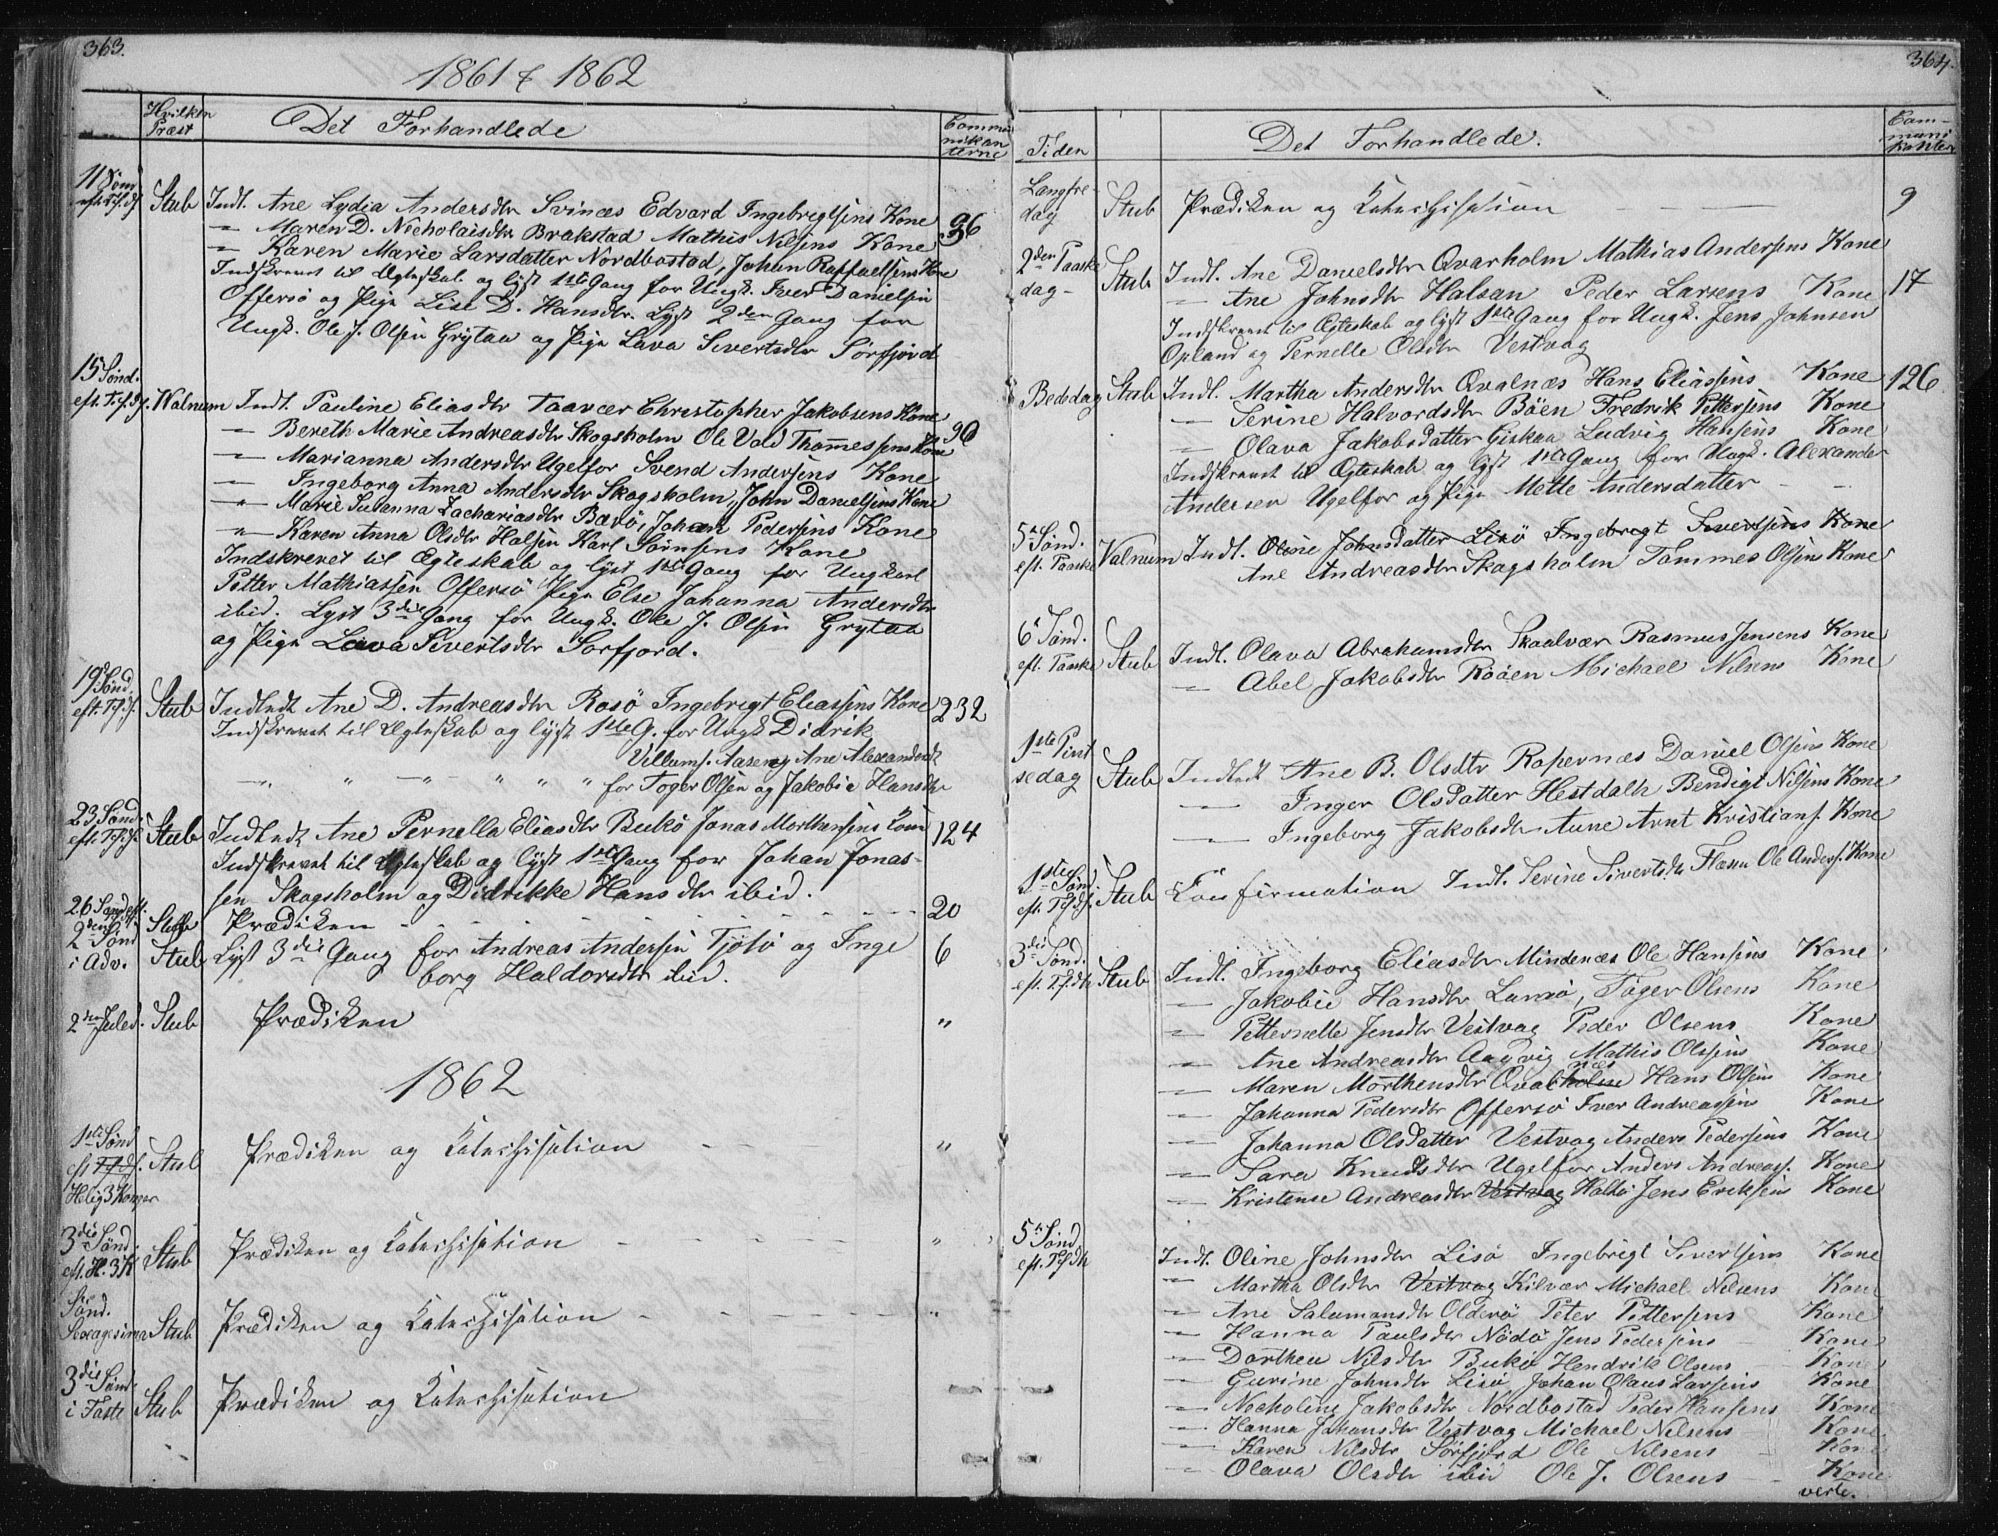 363.
1861 & 1862
Hvilken Præst
Det Forhandlede
Commu nikan terne
11 Sønd eft. Tr.f.d. Stub Indl. Ane Lydia Andersdtr Svinæs Edvard Ingebrigtsens Kone 36
" Maren D. Nicholaisdtr Brakstad Mathis Nilsens Kone
" Karen Marie Larsdatter Nordbostad, Johan Raffaelsens Kone
Indskrevet til Ægteskab og lyst 1ste Gang for Ungk. Iver Danielsen
Offersø og Pige Lise D. Hansdtr. Lyst 2den Gang for
Ungk. Ole J. Olsen Grytaa og Pige Lava Sivertsdtr Sørfjord
15 Sønd. eft. Tr.f.d. Walnum Indl. Pauline Eliasdtr Taavær Christopher Jakobsens Kone 90
" Bereth Marie Andreasdtr Skogsholm Ole Vold Thommessens Kone
" Marianna Andersdtr Ugelfor Svend Andersens Kone
" Ingeborg Anna Andersdtr Skogsholm, John Danielsens Kone
" Marie Susanna Zachariasdtr Bærø, Johan Pedersens Kone
" Karen Anna Olsdtr Halsen Karl Sørnsens Kone
Indskrevet til Ægteskab og lyst 1ste Gang for Ungkarl
Petter Mathiassen Offersø Pige Else Johanna Andersdtr
ibid. Lyst 3die Gang for Ungk. Ole J. Olsen Grytaa
og Pige Lava Sivertsdtr Sørfjord.
19 Sønd. eft. T.f.d. Stub Indledt Ane D. Andreasdtr Rosø Ingebrigt Eliassens Kone 232
Indskrevet til Ægteskab og lyst 1ste G. for Ungk Didrik
Villums. Aasen og Ane Alexandersdt
" " " " " " for Toger Olsen og Jakobie Hansdtr
23 Sønd. eft. T.f.d. Stub Indledt Ane Pernella Eliasdtr Bukø Jonas Morthensens Kone 124
Indskrevet til Ægteskab og lyst 1ste Gang for Johan Jonas-
sen Skogsholm og Didrikke Hansdtr ibid.
26 Sønd eft. Stub Prædiken - - - 20
2den Sønd i Adv. Stub Lyst 3die Gang for Andreas Andersen Tjøtø og Inge 6
borg Haldorsdtr ibid.
2den Juled. Stub Prædiken "
1862
1ste Sønd eft Helig 3 Konger Stub Prædiken og Katechisation - - "
3die Sønd. eft. H. 3 K Stub Prædiken og Katechisation - - - "
Sønd. Sexagesima Stub Prædiken og Katechisation - - - "
3die Sønd. i Faste Stub Prædiken og Katechisation
364.
Tiden
Det Forhandlede.
Com- muni kanter
Langfre- dag Stub Prædiken og Katechisation - - - 9
2den Paaske dag- Stub Indl. Ane Danielsdtr Qvarholm Mathias Andersens Kone 17
" Ane Johnsdtr Halsan Peder Larsens Kone
Indskrevet til Ægteskab og lyst 1ste Gang for Ungk. Jens Johnsen
Opland og Pernelle Olsdtr Vestvog
Bededag Stub Indl. Martha Andersdtr Qvalnæs Hans Eliassens Kone 126
" Serine Halvordsdtr Bøen Fredrik Pettersens Kone
" Olava Jakobsdatter Giskaa Ludvig Hansens Kone
Indskrevet til Ægteskab og lyst 1ste Gang for Ungk. Alexander
Andersen Ugelfor og Pige Mette Andersdatter - -
5te Sønd. eft. Paaske Valnum Indl. Oline Johnsdatter Lisø Ingebrigt Sivertsens Kone
Ane Andreasdtr Skogsholm Tommes Olsens Kone
6te Sønd. eft. Paaske Stub Indl. Olava Abrahamsdtr Skaalvær Rasmus Jensens Kone
" Abel Jakobsdtr Røøen Michael Nilsens Kone
1ste Pint sedag Stub Indledt Ane B. Olsdtr Ropernæs Daniel Olsens Kone
" Inger Olsdatter Hestdalh Bendigt Nilsens Kone
" Ingeborg Jakobsdtr Aune Arnt Kristians. Kone
1ste Sønd. eft. T.f.d. Stub Confirmation Indl. Serine Sivertsdtr Flæsen Ole Anders. Kone
3die Sønd. eft. T.f.d. Stub Indl. Ingeborg Eliasdtr Mindenæs Ole Hansens Kone
" Jakobie Hansdtr Langsø, Toger Olsens Kone
" Petternelle Jensdtr Vestvog Peder Olsens Kone
" Ane Andreasdtr Aagvig Mathis Olsens Kone
" Maren Morthensdtr Qvalholm næs Hans Olsens Kone
" Johanna Pedersdtr Offersø Iver Andreassens Kone
" Johanna Olsdatter Vestvog Anders Pedersens Kone
" Sara Knudsdtr Ugelfor Anders Andreass. Kone
" Kristense Andreasdtr Vestvog Haltø Jens Eriksens Kone
5te Sønd. eft. T.f.d. Indl. Oline Johnsdtr Lisø Ingebrigt Sivertsens Kone
" Martha Olsdtr Vestvog Kilvær Michael Nilsens Kone
" Ane Salamansdtr Olderø Peter Pettersens Kone
" Hanna Paulsdtr Nödö Jens Pedersens Kone
" Dorthea Nilsdtr Bukø Hendrik Olsens Kone
" Gurine Johnsdtr Lisø Johan Olaus Larsens Kone
" Necholine Jakobsdtr Nordbostad Peder Hansens Kone
" Hanna Johansdtr Vestvog Michael Nilsens Kone
" Karen Nilsdtr Sørfjord Ole Nilsens Kone
" Olava Olsdtr ibid Ole J. Olsens Kone
verte.